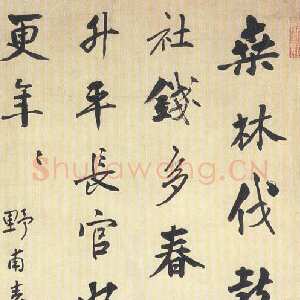 桑林伐鼓
社錢多春
升平長官
更年〻
野甫
Shufawang.CN